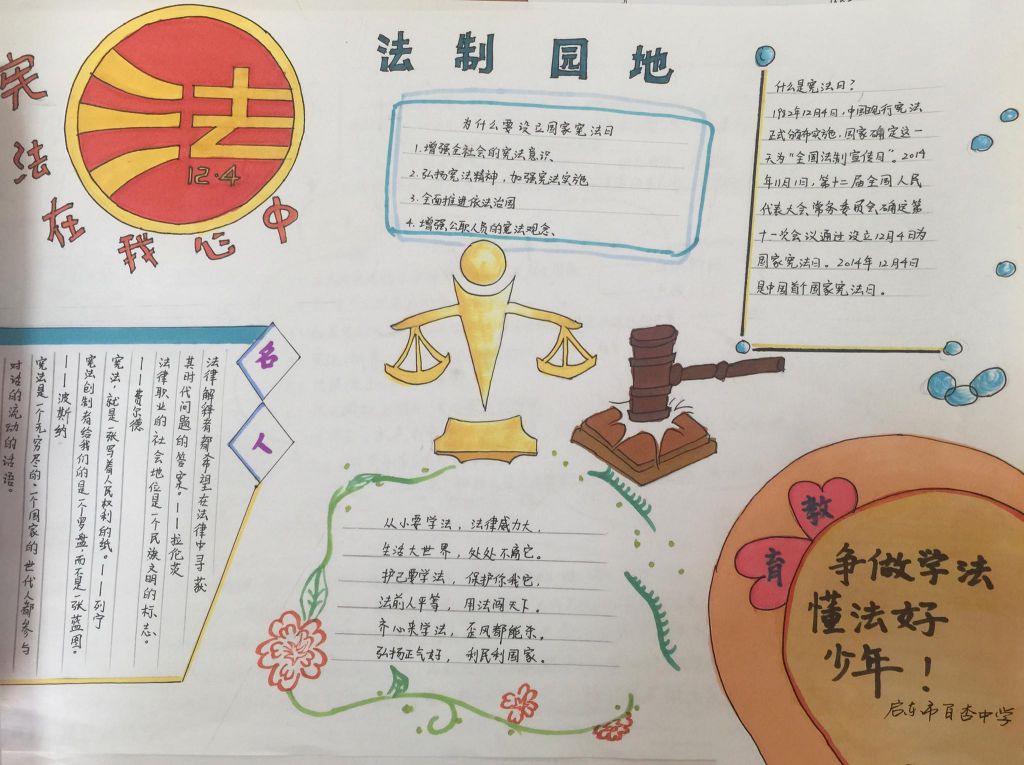 宪法在我心中
法
12.4
法制园地
为什么要设立国家宪法日
1.增强全社会的宪法意识、
2.弘扬宪法精神,加强宪法实施
3.全面推进依法治国
4.增强公职人员的宪法观念、
什么是宪法日?
1982年12月4日,中国现行宪法
正式颁布实施,国家确定这一
天为“全国法制宣传日”。2014
年11月1日,第十二届全国人民
代表大会常务委员会确定第
十一次会议通过设立12月4日为
国家宪法日。2014年12月4日
是中国首个国家宪法日。
名人
法律解释者都希望在法律中寻获
其时代问题的答案。——拉伦茨
法律职业的社会地位是一个民族文明的标志。
——费尔德
宪法,就是一张写着人民权利的纸。——列宁
宪法创制者给我们的是一个罗盘,而不是一张蓝图。
——波斯纳
宪法是一个无穷尽的、一个国家的世代人都参与
对话的流动的话语。
从小要学法,法律威力大、
生活大世界,处处不离它。
护己要学法,保护你我它,
法前人平等,用法闯天下。
齐心来学法,歪风都能杀。
弘扬正气好,利民利国家。
教育
争做学法
懂法好
少年!
启东市百杏中学